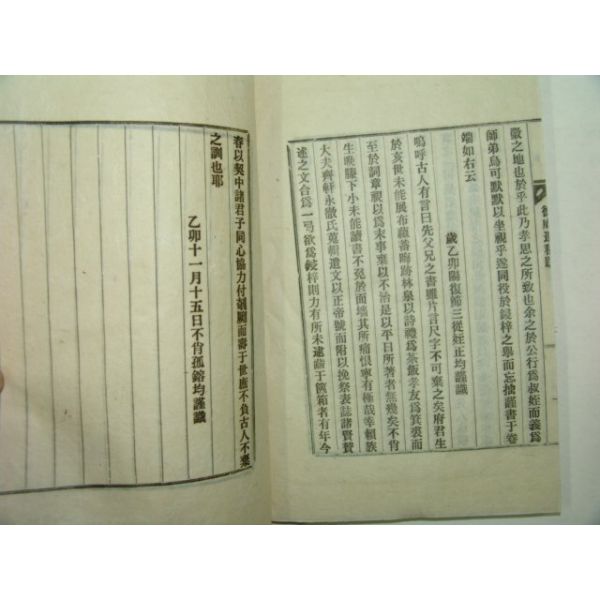 徵之地也於乎此乃孝思之所致也余之於公行爲叔姪而義爲
師弟烏可默默以坐視乎遂同役於鋟梓之擧而忘拙謹書于卷
端如右云
歲乙卯陽復節三從姪止均謹識
嗚呼古人有言曰先父兄之書雖片言尺字不可棄之矣府君生
於亥世未能展布蘊蓄晦跡林泉以詩禮爲茶飯孝友爲箕裘而
至於詞章視以爲末事棄以不治是以平日所著者無幾矣不肖
生晚膝下小未能讀書不免於面墻其所痛恨寧有極哉幸賴族
大夫齊軒永徹氏蒐輯遺文以正帝號而附以挽祭表誌諸賢贊
述之文合爲一弓欲爲鋟梓則力有所未逮齎于篋箱者有年今
春以契中諸君子同心協力付剞劂而壽于世庶不負古人不棄
之訓也耶
乙卯十一月十五日不肖孤鎔均謹識